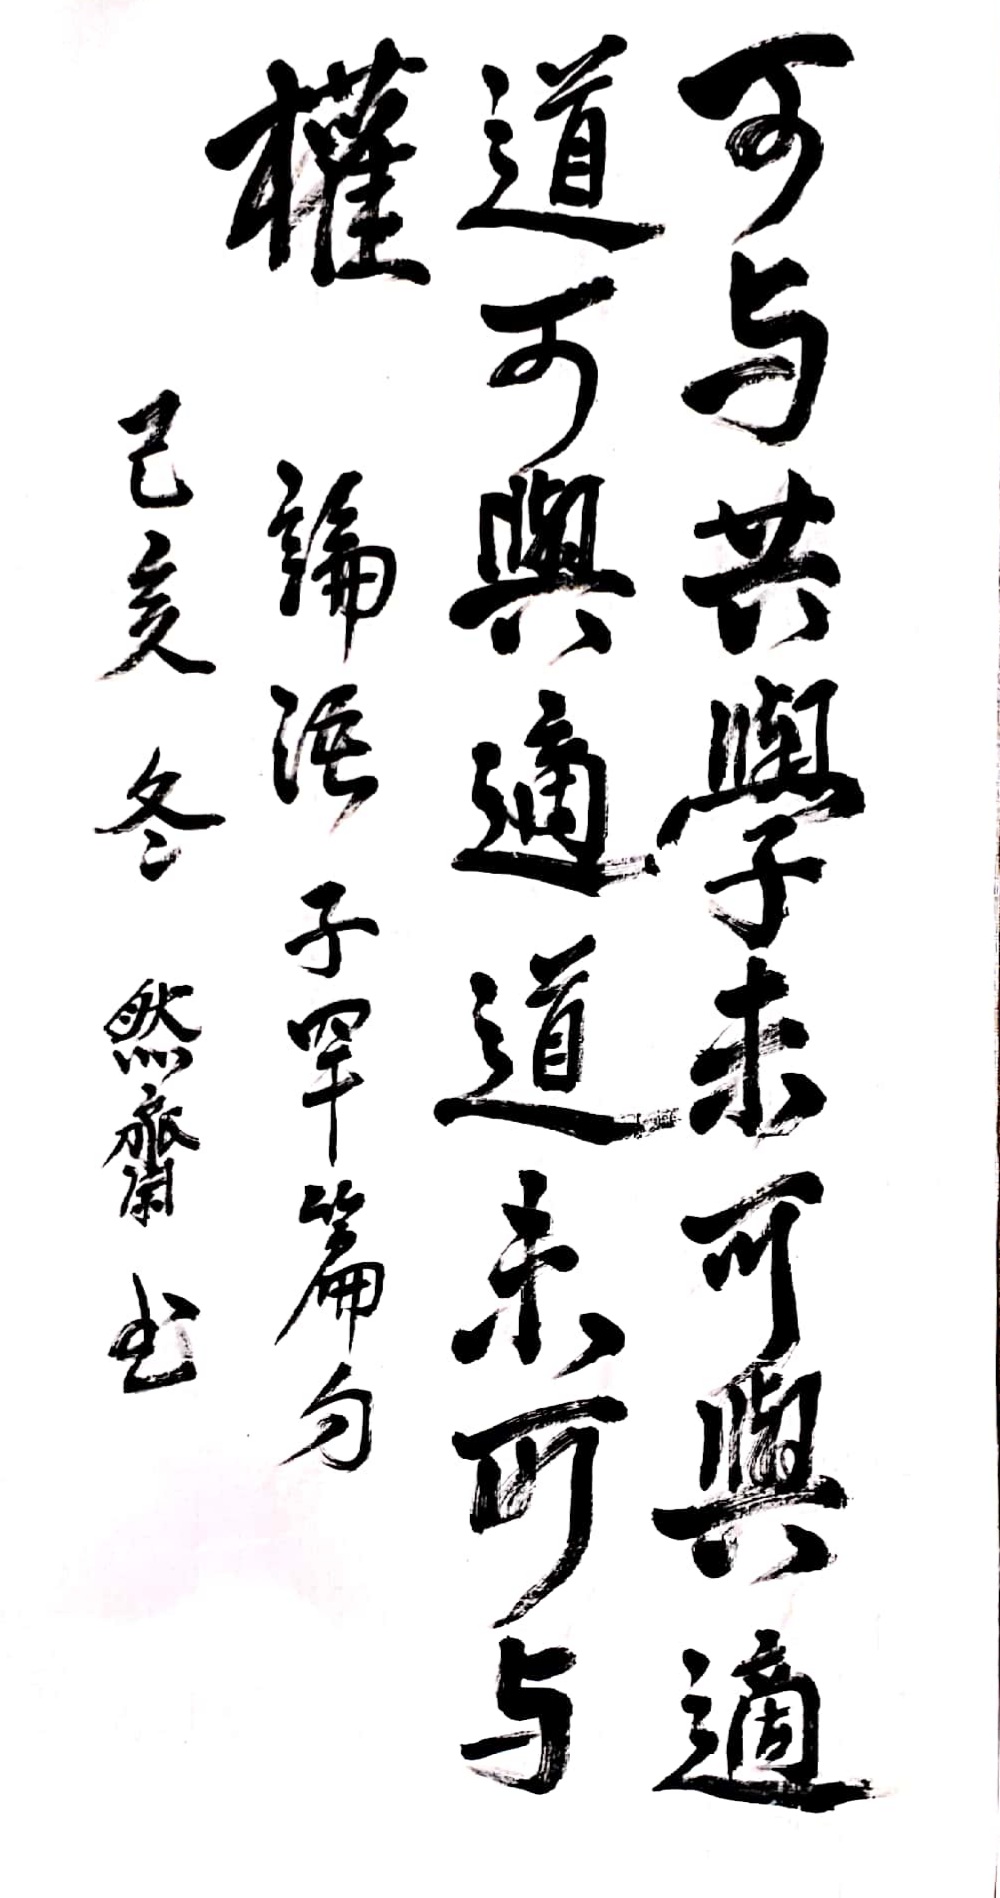 可与共學未可與適
道可與適道未可与
權
論語子罕篇句
己亥冬然齋书